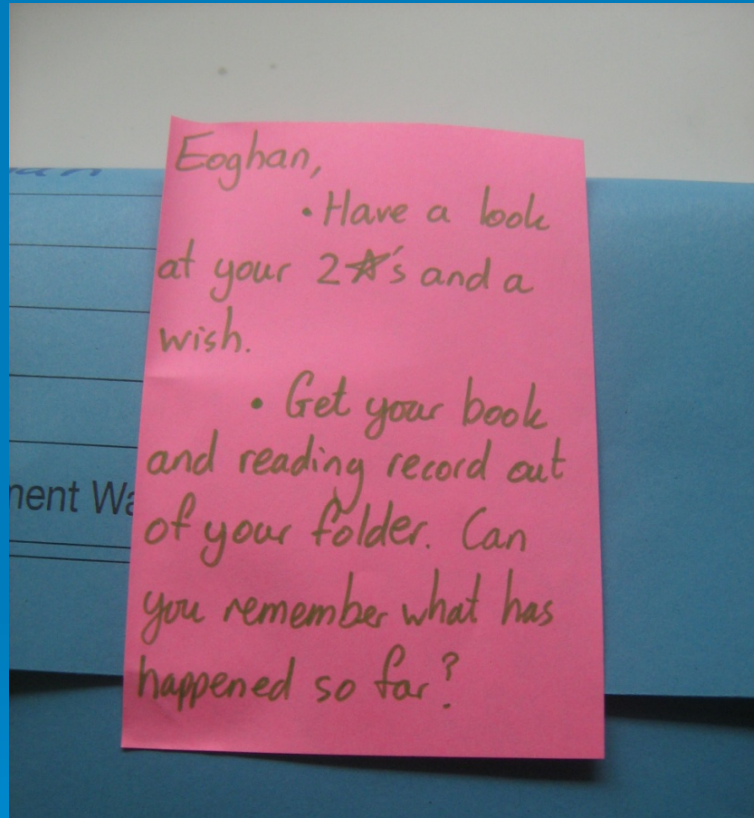 Eoghan,
• Have a look
at your 2 ☆'s and a
wish.
• Get your book
and reading record out
of your folder. Can
you remember what has
happened so far?